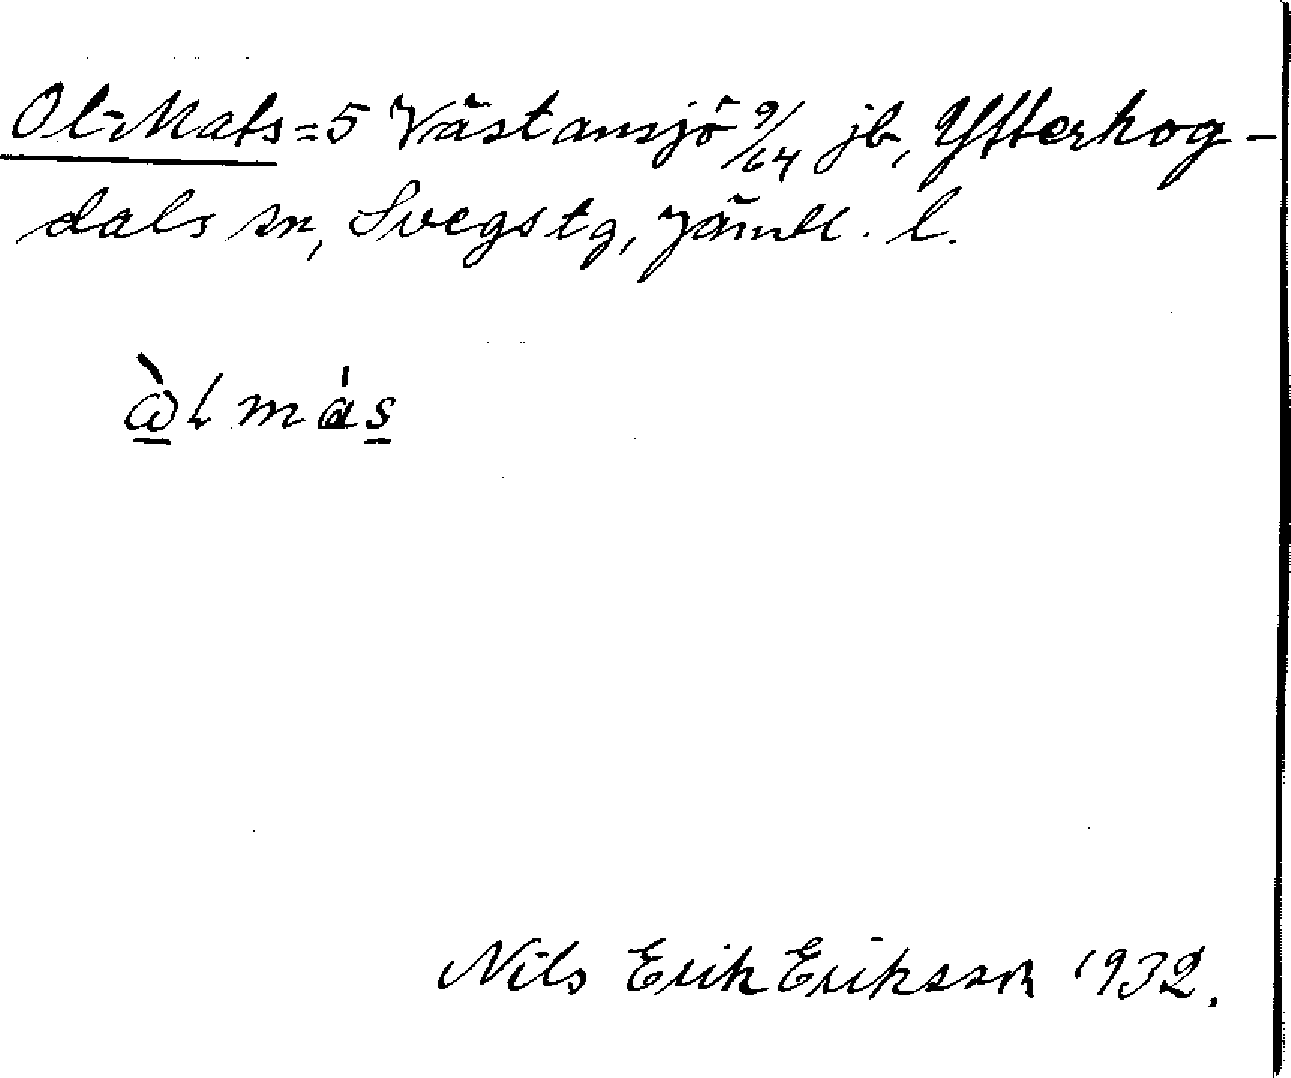 Ol-Mats = 5 Västansjö 9/64 jb, Ytterhog-
dals sn, Svegs tg, Jämtl. l.
ὼl más
Nils Erik Eriksson 1932.